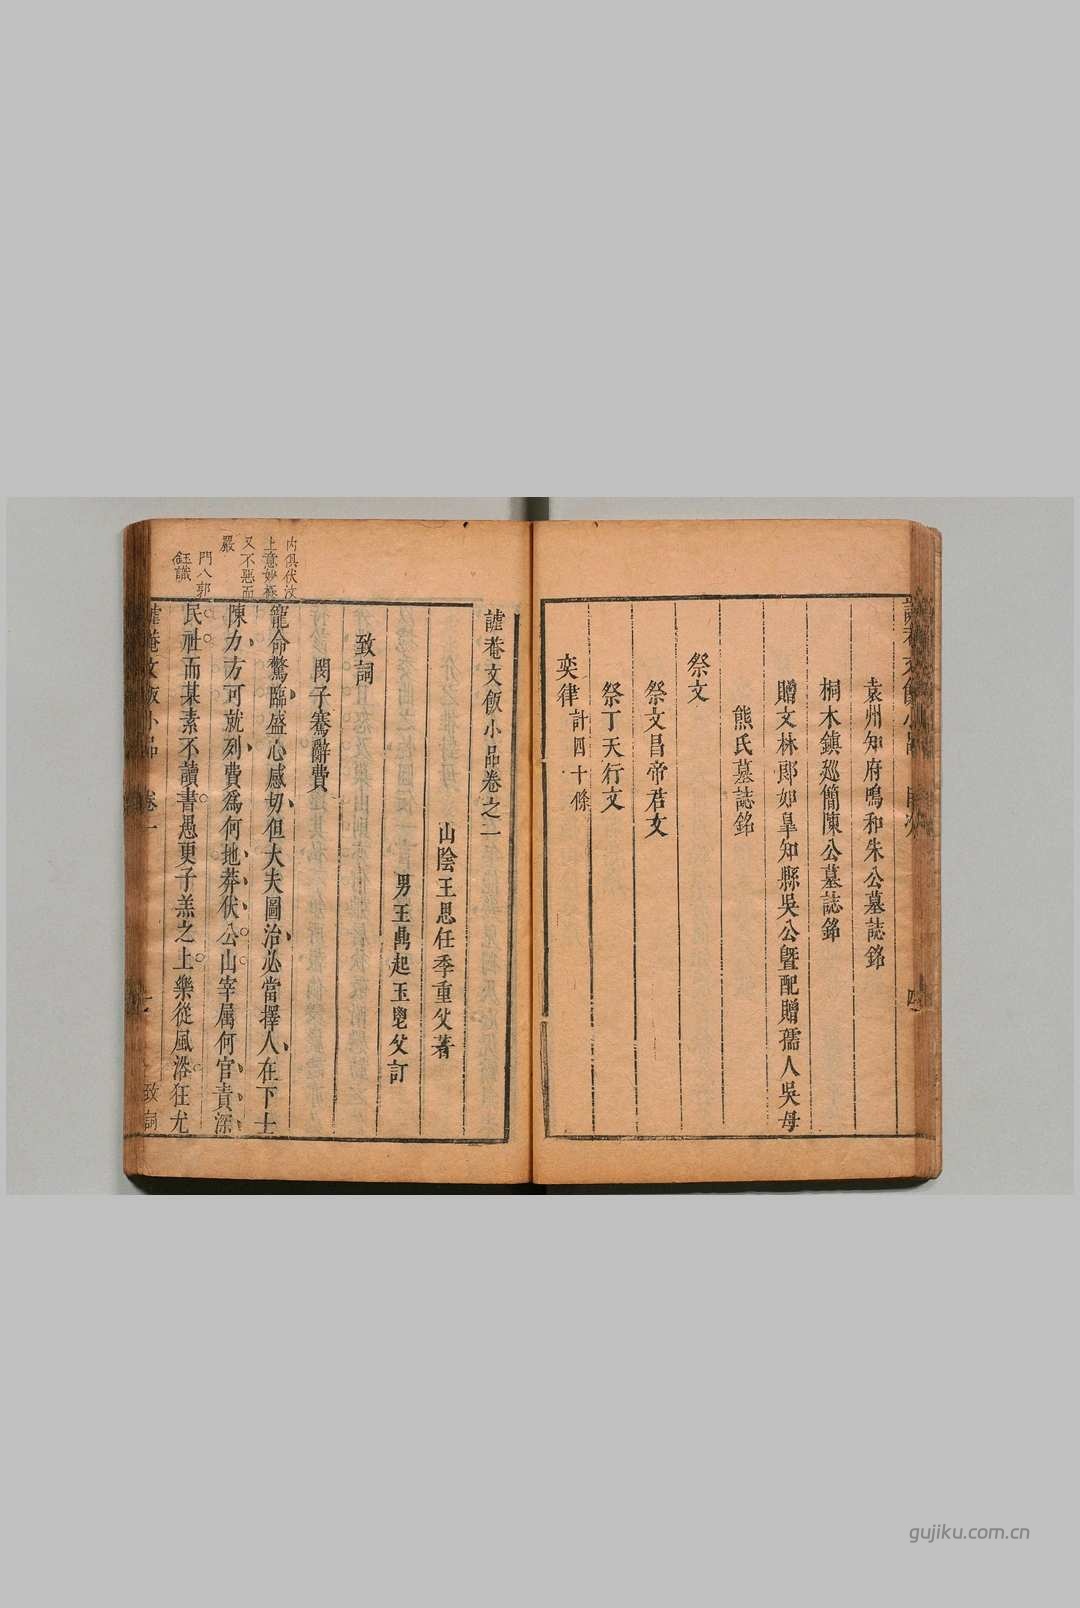 袁州知府鳴和朱公墓誌銘
桐木鎮廵簡陳公墓誌銘
贈文林郎如皐知縣吳公曁配贈孺人吳母
熊氏墓誌銘
祭文
祭文昌帝君文
祭丁天行文
奕律計四十條
謔菴文飯小品卷之一
山陰王思任季重父著
男王鼎起玉鬯父訂
致詞
閔子騫辭費
寵命驚臨盛心感切但大夫圖治必當擇人在下士
陳力方可就列費爲何地莽伏公山宰屬何官責深
民社而某素不讀書愚更子羔之上樂從風浴狂尤
內俱伏汶
上意妙極
又不惡而
嚴
門八郭
鈺識
謔菴文飯小品 卷一 一 致詞
gujiku.com.cn